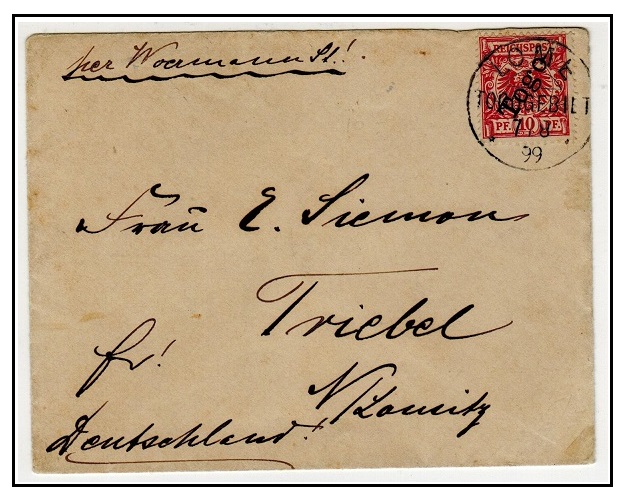 per Woermann St!.
REICHSPOST
Togo
PF. 10 PF.
LOME
TOGOGEBIET
99
Frau E. Siemon
Triebel
fr!
N/Lausitz
Deutschland!